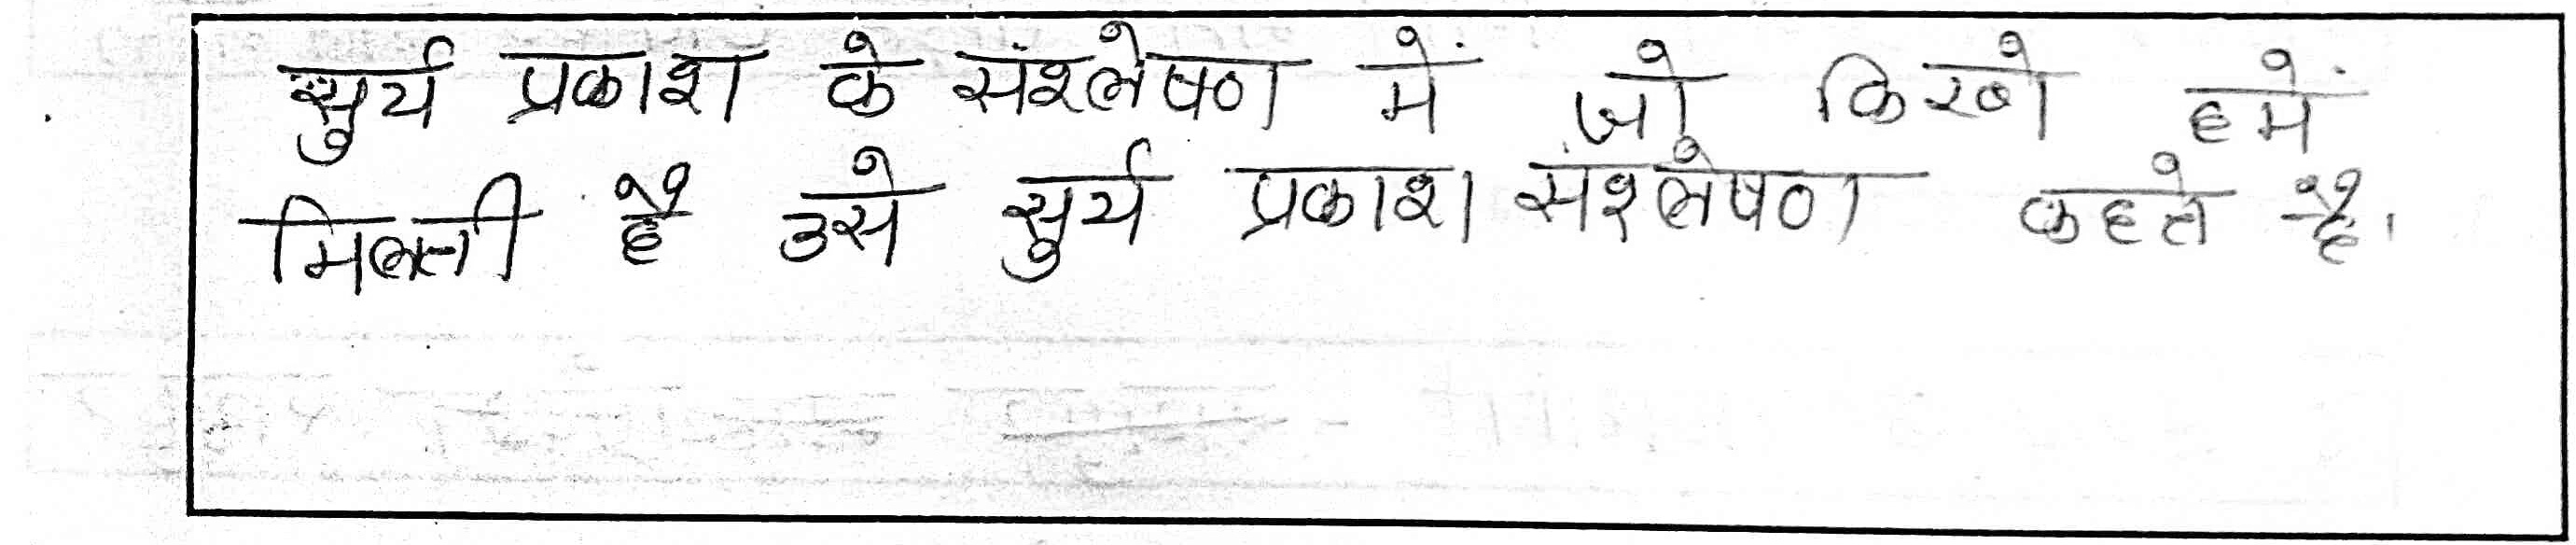 सुर्य प्रकाश के संश्लेषण में जो किरणे हमें
मिलती है उसे सुर्य प्रकाश संश्लेषण कहते है।